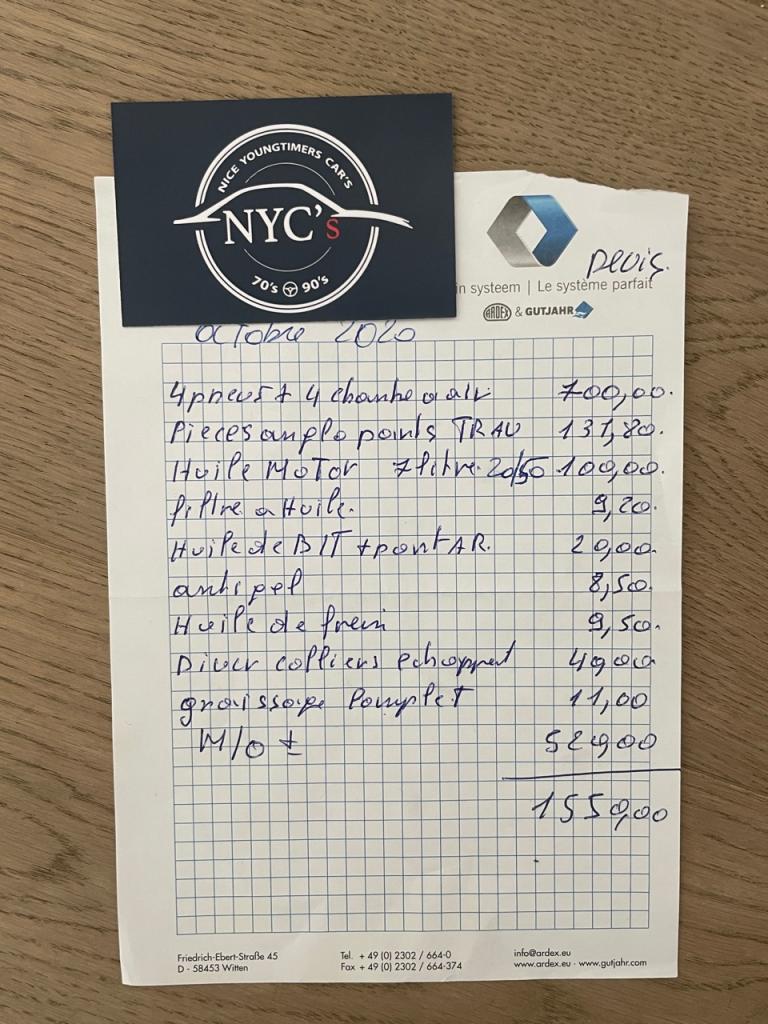 NICE YOUNGTIMERS CAR'S
NYC's
70's 90's
in systeem | Le système parfait
Devis.
ARDEX & GUTJAHR
octobre 2020
4 pneus + 4 chambre a air 700,00.
Pieces anglo points TRAU 131,80.
Huile MOTOR 7 litre 20/50 100,00.
filtre a Huile. 9,20.
Huile de BIT + pont AR. 20,00.
antigel 8,50.
Huile de frein 9,50.
Diver colliers echappet 40,00
graissage Complet 11,00
M/o ± 520,00
1550,00
Friedrich-Ebert-Straße 45
D - 58453 Witten
Tel. + 49 (0) 2302 / 664-0
Fax + 49 (0) 2302 / 664-374
info@ardex.eu
www.ardex.eu · www.gutjahr.com